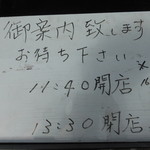 御案内致します
お待ち下さい
11:40開店
13:30閉店